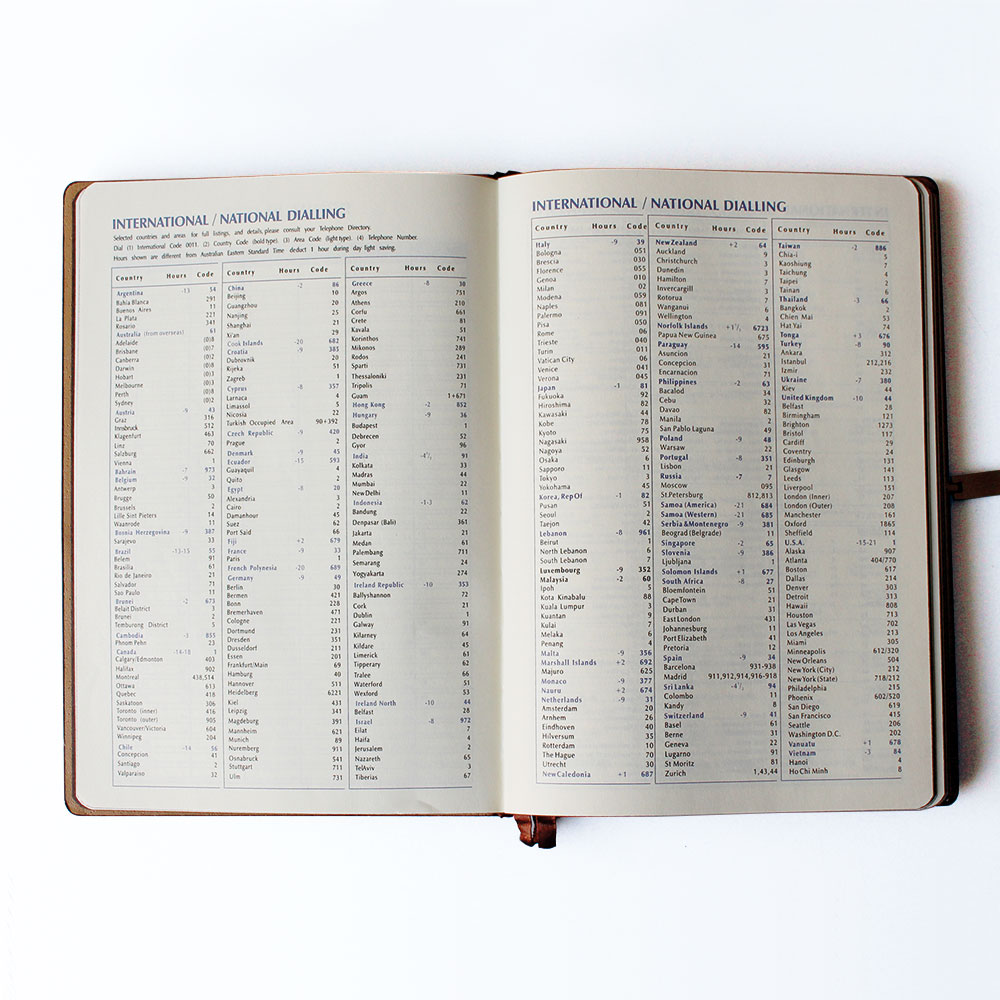 INTERNATIONAL / NATIONAL DIALLING
Selected countries and areas for full listings, and details, please consult your Telephone Directory.
Dial (1) International Code 0011. (2) Country Code (bold type). (3) Area Code (light type). (4) Telephone Number.
Hours shown are different from Australian Eastern Standard Time deduct 1 hour during day light saving.
Country Hours Code
Argentina -13 54
Bahia Blanca 291
Buenos Aires 11
La Plata 221
Rosario 341
Australia (from overseas) 61
Adelaide (0)8
Brisbane (0)7
Canberra (0)2
Darwin (0)8
Hobart (0)3
Melbourne (0)3
Perth (0)8
Sydney (0)2
Austria -9 43
Graz 316
Innsbruck 512
Klagenfurt 463
Linz 70
Salzburg 662
Vienna 1
Bahrain -7 973
Belgium -9 32
Antwerp 3
Brugge 50
Brussels 2
Lille Siet Pieters 14
Waanrode 11
Bosnia Herzegovina -9 387
Sarajevo 33
Brazil -13-15 55
Belem 91
Brasilia 61
Rio de Janeiro 21
Salvador 71
Sao Paulo 11
Brunei -2 673
Belait District 3
Brunei 2
Temburong District 5
Cambodia -3 855
Phnom Pehn 23
Canada -14-18 1
Calgary/Edmonton 403
Halifax 902
Montreal 438,514
Ottawa 613
Quebec 418
Saskatoon 306
Toronto (inner) 416
Toronto (outer) 905
Vancouver/Victoria 604
Winnipeg 204
Chile -14 56
Concepcion 41
Santiago 2
Valparaiso 32
Country Hours Code
China -2 86
Beijing 10
Guangzhou 20
Nanjing 25
Shanghai 21
Xi'an 29
Cook Islands -20 682
Croatia -9 385
Dubrovnik 20
Kijeka 51
Zagreb 1
Cyprus -8 357
Larnaca 4
Limassol 5
Nicosia 22
Turkish Occupied Area 90+392
Czech Republic -9 420
Prague 2
Denmark -9 45
Ecuador -15 593
Guayaquil 4
Quito 2
Egypt -8 20
Alexandria 3
Cairo 2
Damanhour 45
Suez 62
Port Said 66
Fiji +2 679
France -9 33
Paris 1
French Polynesia -20 689
Germany -9 49
Berlin 30
Bermen 421
Bonn 228
Bremerhaven 471
Cologne 221
Dortmund 231
Dresden 351
Dusseldorf 211
Essen 201
Frankfurt/Main 69
Hamburg 40
Hannover 511
Heidelberg 6221
Kiel 431
Leipzig 341
Magdeburg 391
Mannheim 621
Munich 89
Nuremberg 911
Osnabruck 541
Stuttgart 711
Ulm 731
Country Hours Code
Greece -8 30
Argos 751
Athens 210
Corfu 661
Crete 81
Kavala 51
Korinthos 741
Mikonos 289
Rodos 241
Sparti 731
Thessaloniki 231
Tripolis 71
Guam 1+671
Hong Kong -2 852
Hungary -9 36
Budapest 1
Debrecen 52
Gyor 96
India -4½ 91
Kolkatta 33
Madras 44
Mumbai 22
New Delhi 11
Indonesia -1-3 62
Bandung 22
Denpasar (Bali) 361
Jakarta 21
Medan 61
Palembang 711
Semarang 24
Yogyakarta 274
Ireland Republic -10 353
Ballyshannon 72
Cork 21
Dublin 1
Galway 91
Kilarney 64
Kildare 45
Limerick 61
Tipperary 62
Tralee 66
Waterford 51
Wexford 53
Ireland North -10 44
Belfast 28
Israel -8 972
Eilat 7
Haifa 4
Jerusalem 2
Nazareth 65
TelAviv 3
Tiberias 67
INTERNATIONAL / NATIONAL DIALLING
Country Hours Code
Italy -9 39
Bologna 051
Brescia 030
Florence 055
Genoa 010
Milan 02
Modena 059
Naples 081
Palermo 091
Pisa 050
Rome 06
Trieste 040
Turin 011
Vatican City 06
Venice 041
Verona 045
Japan -1 81
Fukuoka 92
Hiroshima 82
Kawasaki 44
Kobe 78
Kyoto 75
Nagasaki 958
Nagoya 52
Osaka 6
Sapporo 11
Tokyo 3
Yokohama 45
Korea, Rep Of -1 82
Pusan 51
Seoul 2
Taejon 42
Lebanon -8 961
Beirut 1
North Lebanon 6
South Lebanon 7
Luxembourg -9 352
Malaysia -2 60
Ipoh 5
Kota Kinabalu 88
Kuala Lumpur 3
Kuantan 9
Kulai 7
Melaka 6
Penang 4
Malta -9 356
Marshall Islands +2 692
Majuro 625
Monaco -9 377
Nauru +2 674
Netherlands -9 31
Amsterdam 20
Arnhem 26
Eindhoven 40
Hilversum 35
Rotterdam 10
The Hague 70
Utrecht 30
New Caledonia +1 687
Country Hours Code
New Zealand +2 64
Auckland 9
Christchurch 3
Dunedin 3
Hamilton 7
Invercargill 3
Rotorua 7
Wanganui 6
Wellington 4
Norfolk Islands +1½ 6723
Papua New Guinea 675
Paraguay -14 595
Asuncion 21
Concepcion 31
Encarnacion 71
Philippines -2 63
Bacalod 34
Cebu 32
Davao 82
Manila 2
San Pablo Laguna 49
Poland -9 48
Warsaw 22
Portugal -8 351
Lisbon 21
Russia -7 7
Moscow 095
St.Petersburg 812,813
Samoa (America) -21 684
Samoa (Western) -21 685
Serbia & Montenegro -9 381
Beograd (Belgrade) 11
Singapore -2 65
Slovenia -9 386
Ljubljana 1
Solomon Islands +1 677
South Africa -8 27
Bloemfontein 51
CapeTown 21
Durban 31
East London 431
Johannesburg 11
Port Elizabeth 41
Pretoria 12
Spain -9 34
Barcelona 931-938
Madrid 911,912,914,916-918
Sri Lanka -4½ 94
Colombo 11
Kandy 8
Switzerland -9 41
Basel 61
Berne 31
Geneva 22
Lugarno 91
St Moritz 81
Zurich 1,43,44
Country Hours Code
Taiwan -2 886
Chia-i 5
Kaoshiung 7
Taichung 4
Taipei 2
Tainan 6
Thailand -3 66
Bangkok 2
Chien Mai 53
Hat Yai 74
Tonga +3 676
Turkey -8 90
Ankara 312
Istanbul 212,216
Izmir 232
Ukraine -7 380
Kiev 44
United Kingdom -10 44
Belfast 28
Birmingham 121
Brighton 1273
Bristol 117
Cardiff 29
Coventry 24
Edinburgh 131
Glasgow 141
Leeds 113
Liverpool 151
London (Inner) 207
London (Outer) 208
Manchester 161
Oxford 1865
Sheffield 114
U.S.A. -15-21 1
Alaska 907
Atlanta 404/770
Boston 617
Dallas 214
Denver 303
Detroit 313
Hawaii 808
Houston 713
Las Vegas 702
Los Angeles 213
Miami 305
Minneapolis 612/320
New Orleans 504
New York (City) 212
New York (State) 718/212
Philadelphia 215
Phoenix 602/520
San Diego 619
San Francisco 415
Seattle 206
Washington D.C. 202
Vanuatu +1 678
Vietnam -3 84
Hanoi 4
Ho Chi Minh 8